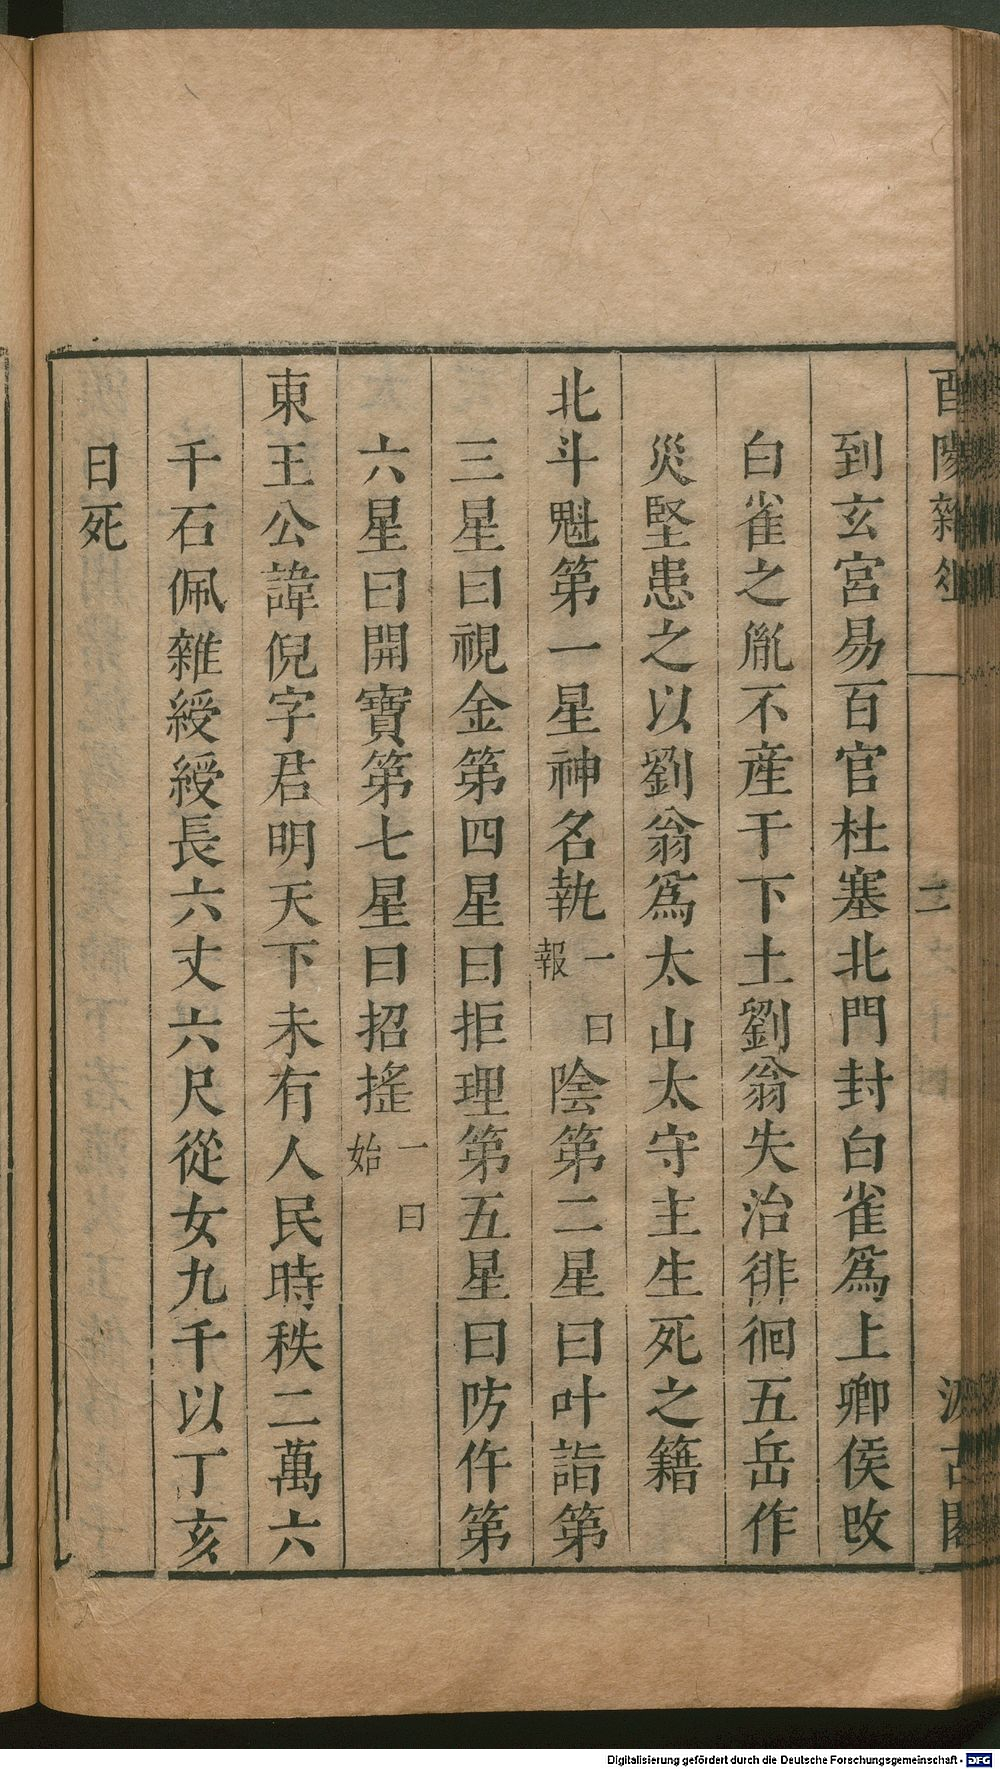 酉陽雜俎 二 汲古閣
到玄宮易百官杜塞北門封白雀爲上卿侯改
白雀之胤不産于下土劉翁失治徘徊五岳作
災堅患之以劉翁爲太山太守主生死之籍
北斗魁第一星神名執一曰報陰第二星曰叶詣第
三星曰視金第四星曰拒理第五星曰防仵第
六星曰開寶第七星曰招搖一曰始
東王公諱倪字君明天下未有人民時秩二萬六
千石佩雜綬綬長六丈六尺從女九千以丁亥
日死
Digitalisierung gefördert durch die Deutsche Forschungsgemeinschaft - DFG